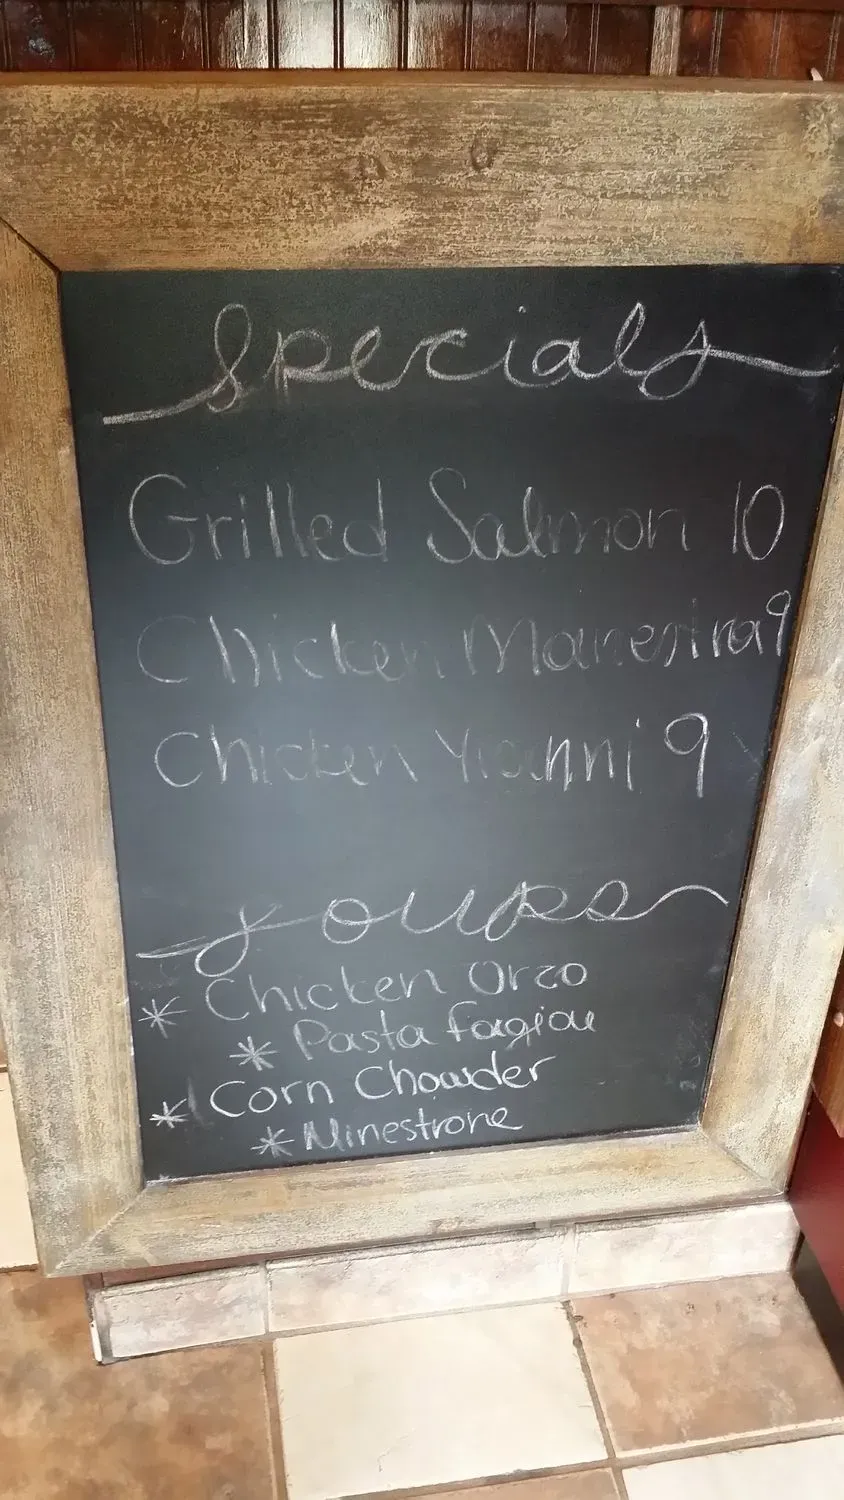 Specials
Grilled Salmon 10
Chicken Manestra 9
Chicken Yianni 9
Soups
* Chicken Orzo
* Pasta Fagiou
* Corn Chowder
* Minestrone